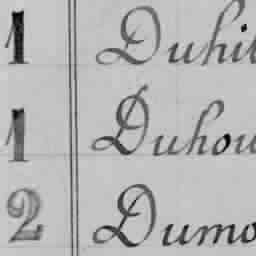 1 Duhil
1 Duhou
2 Dumo